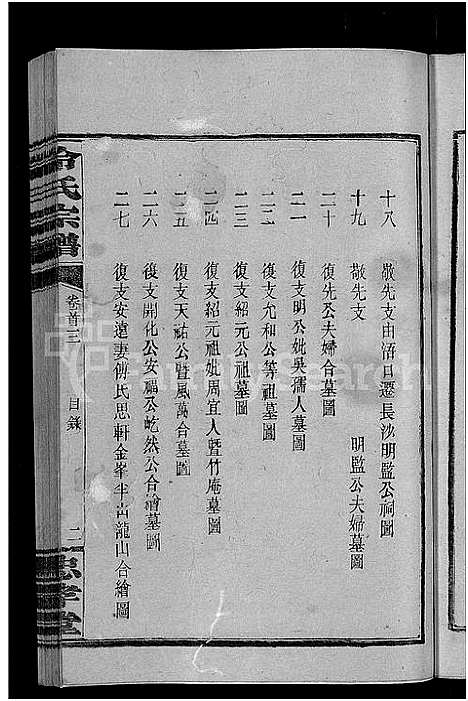 十八 敬先支由沼口遷長沙明監公祠圖
十九 敬先支 明監公夫婦墓圖
二十 復先丞夫婦合墓圖
二一 復支明公妣吳孺人墓圖
二二 復支允和公等祖墓圖
二三 復支紹元公祖墓圖
二四 復支紹元祖妣周宜人暨竹庵墓圖
二五 復支天祐公暨風萬合墓圖
二六 復支開化公安福公屹然公合繪墓圖
二七 復支安遠妻傅氏思軒金峯半古龍山合繪圖
冷氏宗譜 卷首三 目錄 二 忠孝堂
FamilySearch